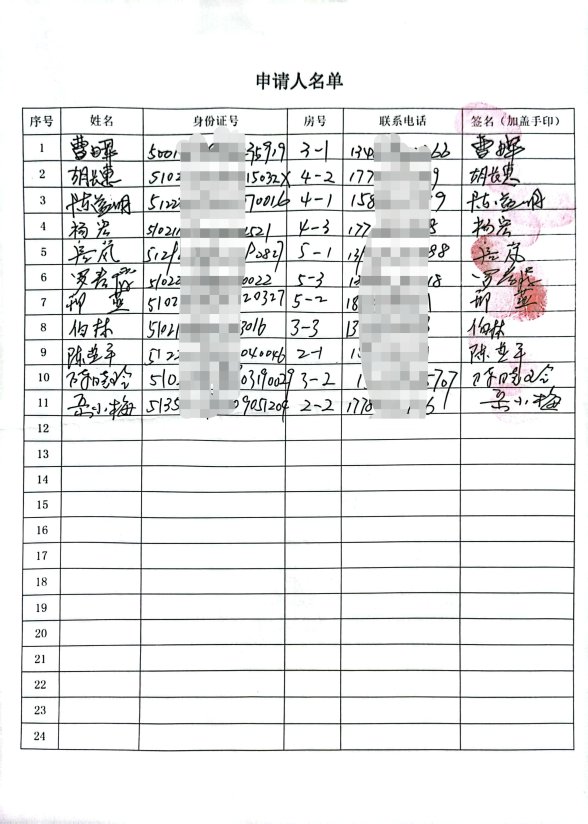 申请人名单
序号 姓名 身份证号 房号 联系电话 签名（加盖手印）
1 曹晖 5001 35919 3-1 134 66 曹晖
2 胡长惠 5102 15032X 4-2 177 9 胡长惠
3 陈益明 5122 70016 4-1 158 9 陈益明
4 杨岩 51021 2521 4-3 177 8 杨岩
5 岚 512 2827 5-1 13 98 岚
6 5102 0022 5-3 13 18
7 邢燕 5102 20327 5-2 18 邢燕
8 伯林 51021 3016 3-3 13 伯林
9 陈 平 5122 040046 2-1 1 陈 平
10 5102 0319002 3-2 1 5707
11 岳小梅 5135 09051204 2-2 1778 6 岳小梅
12
13
14
15
16
17
18
19
20
21
22
23
24